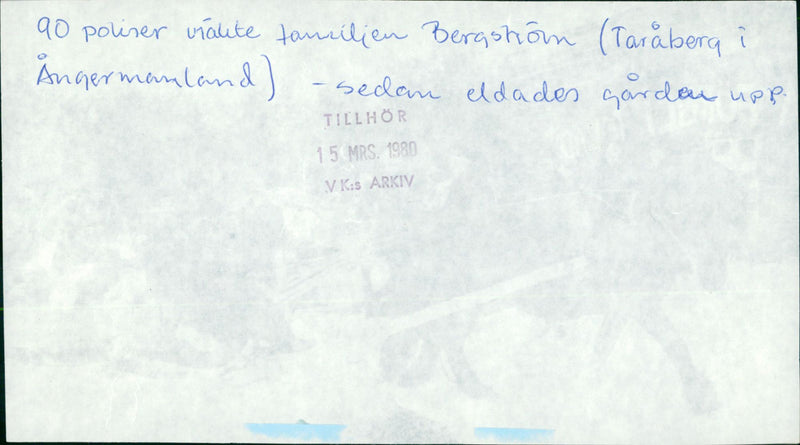 90 poliser väckte familjen Bergström (Taråberg i
Ångermanland) - sedan eldades gården upp.
TILLHÖR
15 MRS. 1980
VK:s ARKIV